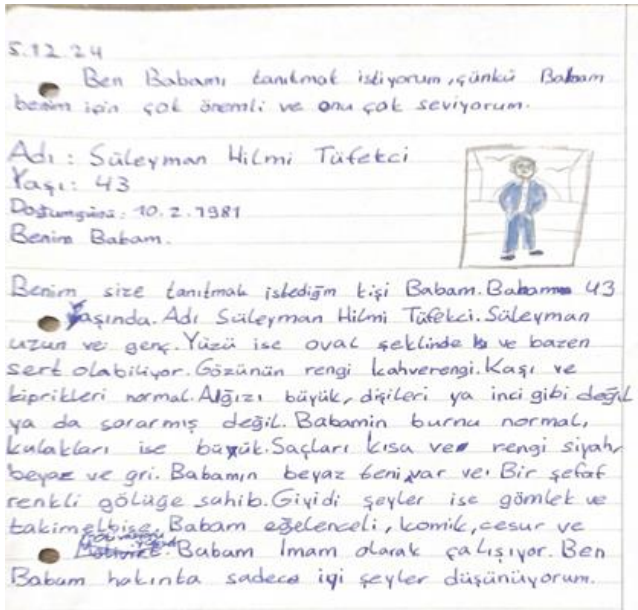 5.12.24
Ben Babamı tanıtmak istiyorum, çünkü Babam
benim için çok önemli ve onu çok seviyorum.
Adı: Süleyman Hilmi Tüfekci
Yaşı: 43
Doğumgünü: 10.2.1981
Benim Babam.
Benim size tanıtmak istediğm kişi Babam. Babam 43
Yaşında. Adı Süleyman Hilmi Tüfekci. Süleyman
uzun ve genç. Yüzü ise oval şeklinde ve bazen
sert olabiliyor. Gözünün rengi kahverengi. Kaşı ve
kiprikleri normal. Alğızı büyük, dişileri ya inci gibi değil
ya da sararmış değil. Babamin burnu normal,
kulakları ise büyük. Saçları kısa ve rengi siyah,
beyaz ve gri. Babamın beyaz teni var ve Bir şefaf
renkli gölüğe sahib. Giyidi şeyler ise gömlek ve
takimelbise. Babam eğelenceli, komik, cesur ve
Babam Imam olarak çalışıyor. Ben
Babam hakınta sadece iyi şeyler düşünüyorum.